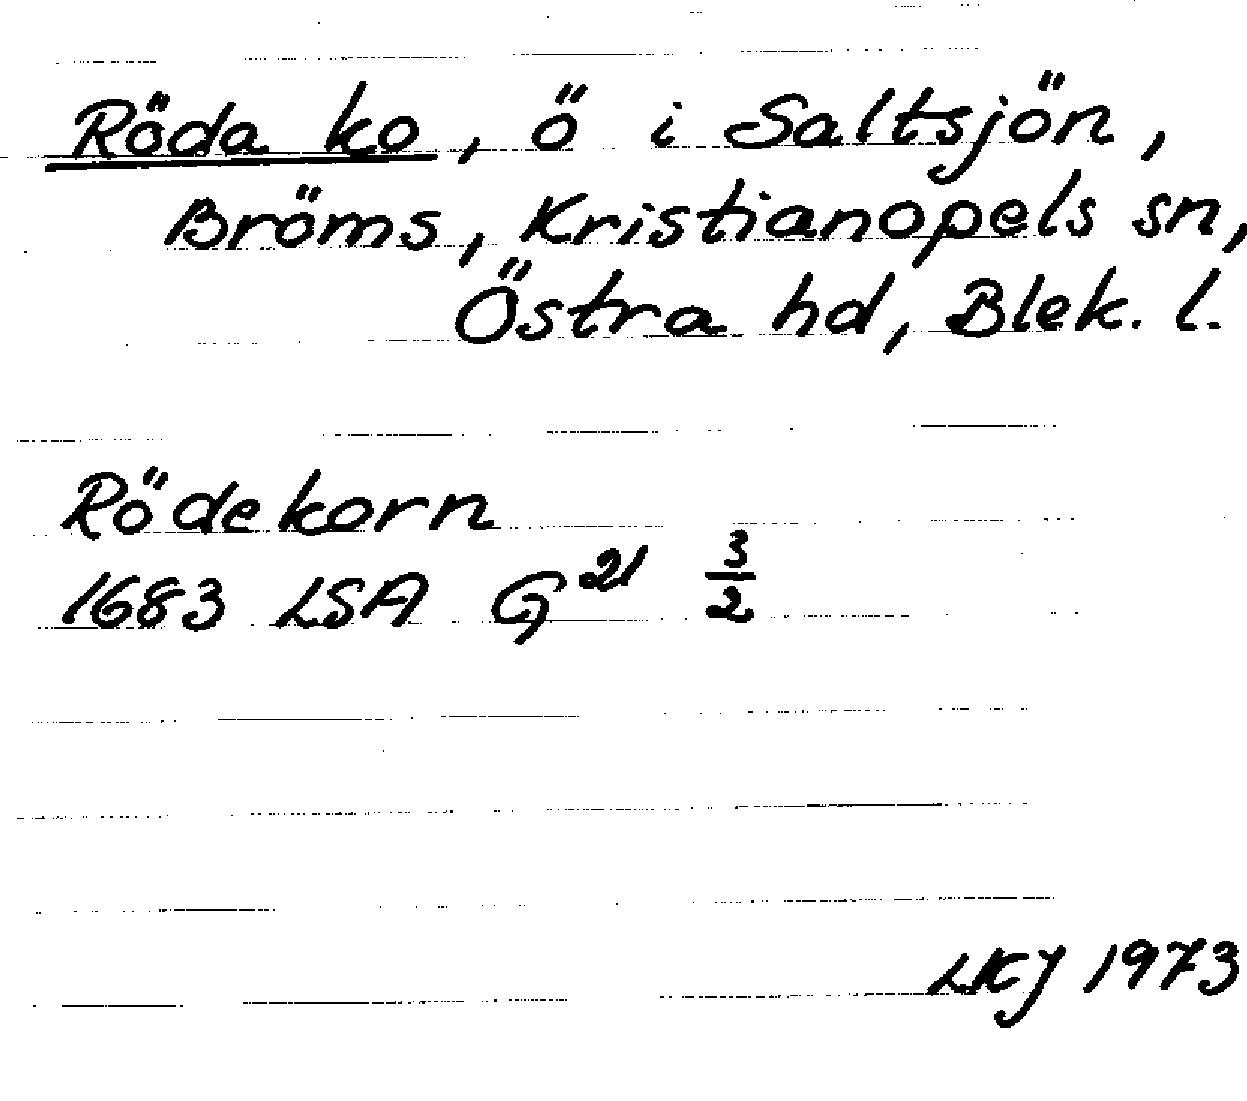 Röda ko, ö i Saltsjön,
Bröms, Kristianopels sn,
Östra hd, Blek. l.
Rödekorn
1683 LSA G 21 3/2
LKJ 1973